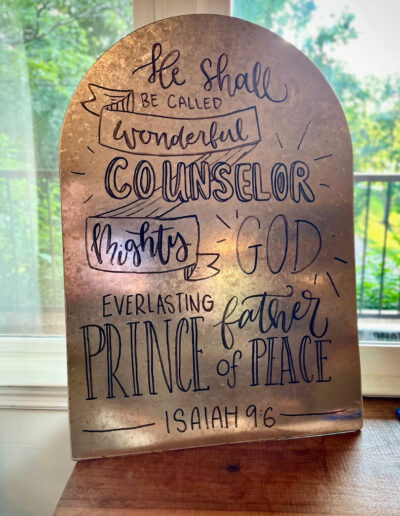 He shall
BE CALLED
Wonderful
COUNSELOR
Mighty GOD
EVERLASTING father
PRINCE of PEACE
ISAIAH 9:6